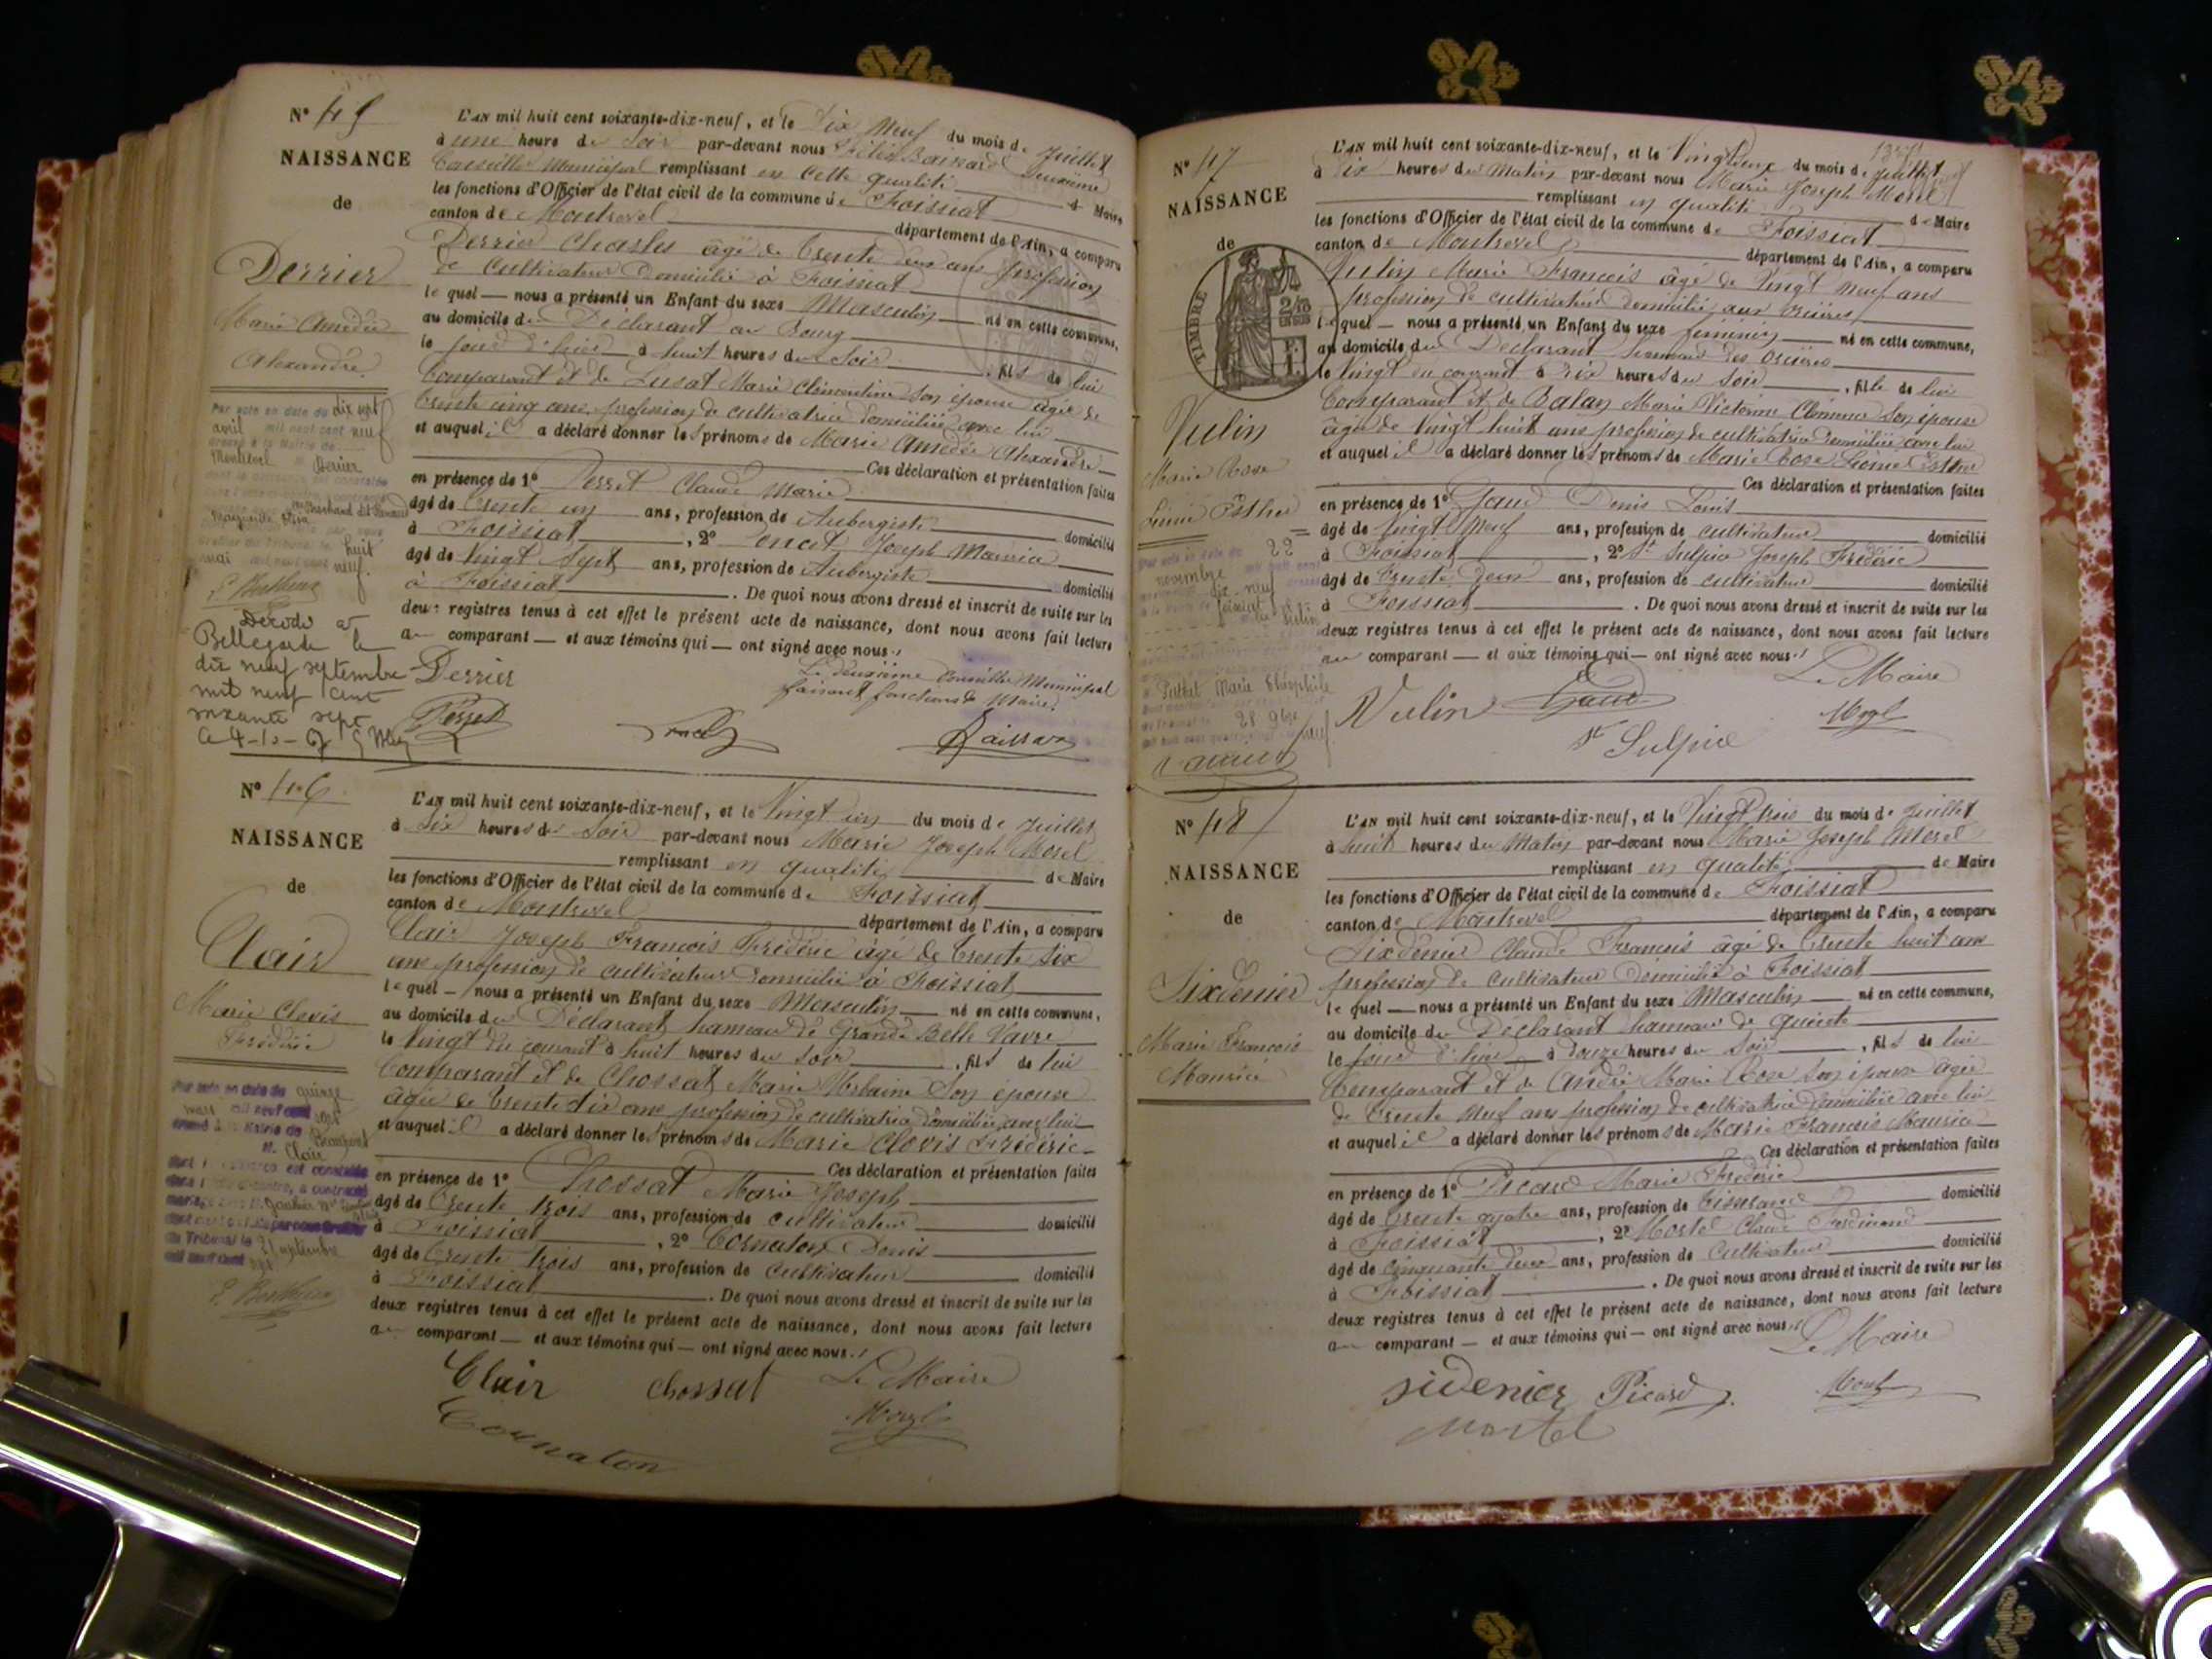 N° 45
NAISSANCE
de
Derrier
Marie Amédée
Alexandre
Par acte en date du dix sept
avril mil neuf cent neuf
dressé à la Mairie de
Montrevel M. Derrier
Marchand dit
huit
mai mil neuf cent neuf.
P. Berthoux
Décédé à
Bellegarde le
dix neuf septembre
mil neuf cent
soixante sept
L'AN mil huit cent soixante-dix-neuf, et le Dix Neuf du mois de Juillet
à une heure du Soir par-devant nous deuxième
Conseiller Municipal remplissant en cette qualité
les fonctions d'Officier de l'état civil de la commune de Foissiat de Maire
canton de Montrevel département de l'Ain, a comparu
Derrier Charles âgé de trente deux ans profession
de cultivateur domicilié à Foissiat
le quel — nous a présenté un Enfant du sexe Masculin — né en cette commune,
au domicile du Déclarant au Bourg
le jour d'hier à huit heures du Soir , fils de lui
Comparant et de Marie Clémentine son épouse âgée de
trente cinq ans, profession de cultivatrice domiciliée avec lui
et auquel il a déclaré donner les prénoms de Marie Amédée Alexandre
Ces déclaration et présentation faites
en présence de 1° Perret Claude Marie
âgé de trente un ans, profession de Aubergiste domicilié
à Foissiat , 2° Joseph Maurice
âgé de vingt Sept ans, profession de Aubergiste domicilié
à Foissiat . De quoi nous avons dressé et inscrit de suite sur les
deux registres tenus à cet effet le présent acte de naissance, dont nous avons fait lecture
au comparant — et aux témoins qui — ont signé avec nous.
Derrier
Le deuxième Conseiller Municipal
faisant fonctions de Maire.
Perret
N° 46
NAISSANCE
de
Clair
Marie Clovis
Frédéric
Par acte en date du quinze
mars mil neuf cent
dressé à la Mairie de Beaupont
M. Clair
dont la naissance est constatée
dans l'acte ci-contre, a contracté
du Tribunal le 21 septembre
mil neuf cent
P. Berthoux
L'AN mil huit cent soixante-dix-neuf, et le Vingt un du mois de Juillet
à Six heures du Soir par-devant nous Marie Joseph Morel
remplissant en qualité de Maire
les fonctions d'Officier de l'état civil de la commune de Foissiat
canton de Montrevel département de l'Ain, a comparu
Clair Joseph François Frédéric âgé de trente six
ans profession de cultivateur domicilié à Foissiat
le quel — nous a présenté un Enfant du sexe Masculin — né en cette commune,
au domicile du Déclarant hameau de Grande Belle Vavre
le Vingt du courant à huit heures du soir , fils de lui
Comparant et de Chossat Marie Urbaine Son épouse
âgée de trente six ans profession de cultivatrice domiciliée avec lui
et auquel il a déclaré donner les prénoms de Marie Clovis Frédéric
Ces déclaration et présentation faites
en présence de 1° Chossat Marie Joseph
âgé de trente trois ans, profession de cultivateur domicilié
à Foissiat , 2° Cornaton Denis
âgé de trente trois ans, profession de cultivateur domicilié
à Foissiat . De quoi nous avons dressé et inscrit de suite sur les
deux registres tenus à cet effet le présent acte de naissance, dont nous avons fait lecture
au comparant — et aux témoins qui — ont signé avec nous.
Clair Chossat Le Maire
Cornaton Morel
N° 47
NAISSANCE
de
TIMBRE
Vulin
Marie Rose
Esther
22
novembre
dix-neuf
Foissiat
Marie Théophile
28 9bre
L'AN mil huit cent soixante-dix-neuf, et le Vingt deux du mois de Juillet
à dix heures du Matin par-devant nous Marie Joseph Morel
remplissant en qualité de Maire
les fonctions d'Officier de l'état civil de la commune de Foissiat
canton de Montrevel département de l'Ain, a comparu
Vulin Marie François âgé de Vingt Neuf ans
profession de cultivateur domicilié aux
le quel — nous a présenté un Enfant du sexe féminin — né en cette commune,
au domicile du Déclarant hameau des
le Vingt un courant à dix heures du Soir , fille de lui
Comparant et de Balay Marie Victorine Clémence Son épouse
âgée de Vingt huit ans profession de cultivatrice domiciliée avec lui
et auquel il a déclaré donner les prénoms de Marie Rose Esther
Ces déclaration et présentation faites
en présence de 1° Gaud Denis Louis
âgé de Vingt Neuf ans, profession de cultivateur domicilié
à Foissiat , 2° St Sulpice Joseph Frédéric
âgé de trente deux ans, profession de cultivateur domicilié
à Foissiat . De quoi nous avons dressé et inscrit de suite sur les
deux registres tenus à cet effet le présent acte de naissance, dont nous avons fait lecture
au comparant — et aux témoins qui — ont signé avec nous.
Le Maire
Vulin Gaud Morel
St Sulpice
N° 48
NAISSANCE
de
Sixdenier
Marie François
Maurice
L'AN mil huit cent soixante-dix-neuf, et le Vingt trois du mois de Juillet
à huit heures du Matin par-devant nous Marie Joseph Morel
remplissant en qualité de Maire
les fonctions d'Officier de l'état civil de la commune de Foissiat
canton de Montrevel département de l'Ain, a comparu
Sixdenier Claude François âgé de trente huit ans
profession de cultivateur domicilié à Foissiat
le quel — nous a présenté un Enfant du sexe Masculin — né en cette commune,
au domicile du Déclarant hameau de
le jour d'hier à douze heures du Soir , fils de lui
Comparant et de André Marie Rose Son épouse âgée
de trente Neuf ans profession de cultivatrice domiciliée avec lui
et auquel il a déclaré donner les prénoms de Marie François Maurice
Ces déclaration et présentation faites
en présence de 1° Picard Marie Frédéric
âgé de trente quatre ans, profession de tisserand domicilié
à Foissiat , 2° Mortel Claude Ferdinand
âgé de Cinquante deux ans, profession de Cultivateur domicilié
à Foissiat . De quoi nous avons dressé et inscrit de suite sur les
deux registres tenus à cet effet le présent acte de naissance, dont nous avons fait lecture
au comparant — et aux témoins qui — ont signé avec nous.
Le Maire
sidenier Picard Morel
Mortel